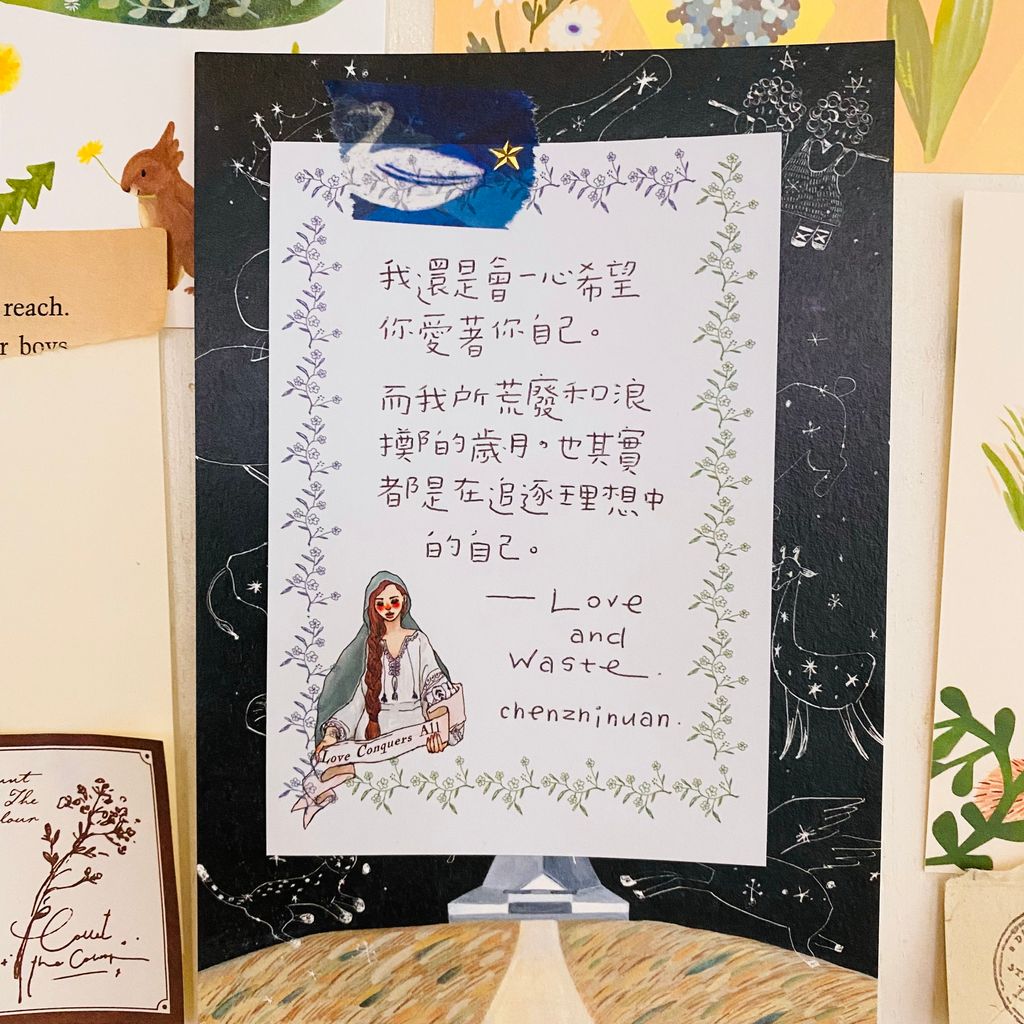 我還是會一心希望
你愛著你自己。
而我所荒廢和浪
擲的歲月,也其實
都是在追逐理想中
的自己。
— Love
and
Waste.
chenzhinuan.
Love Conquers All
reach.
r boys
The
lour